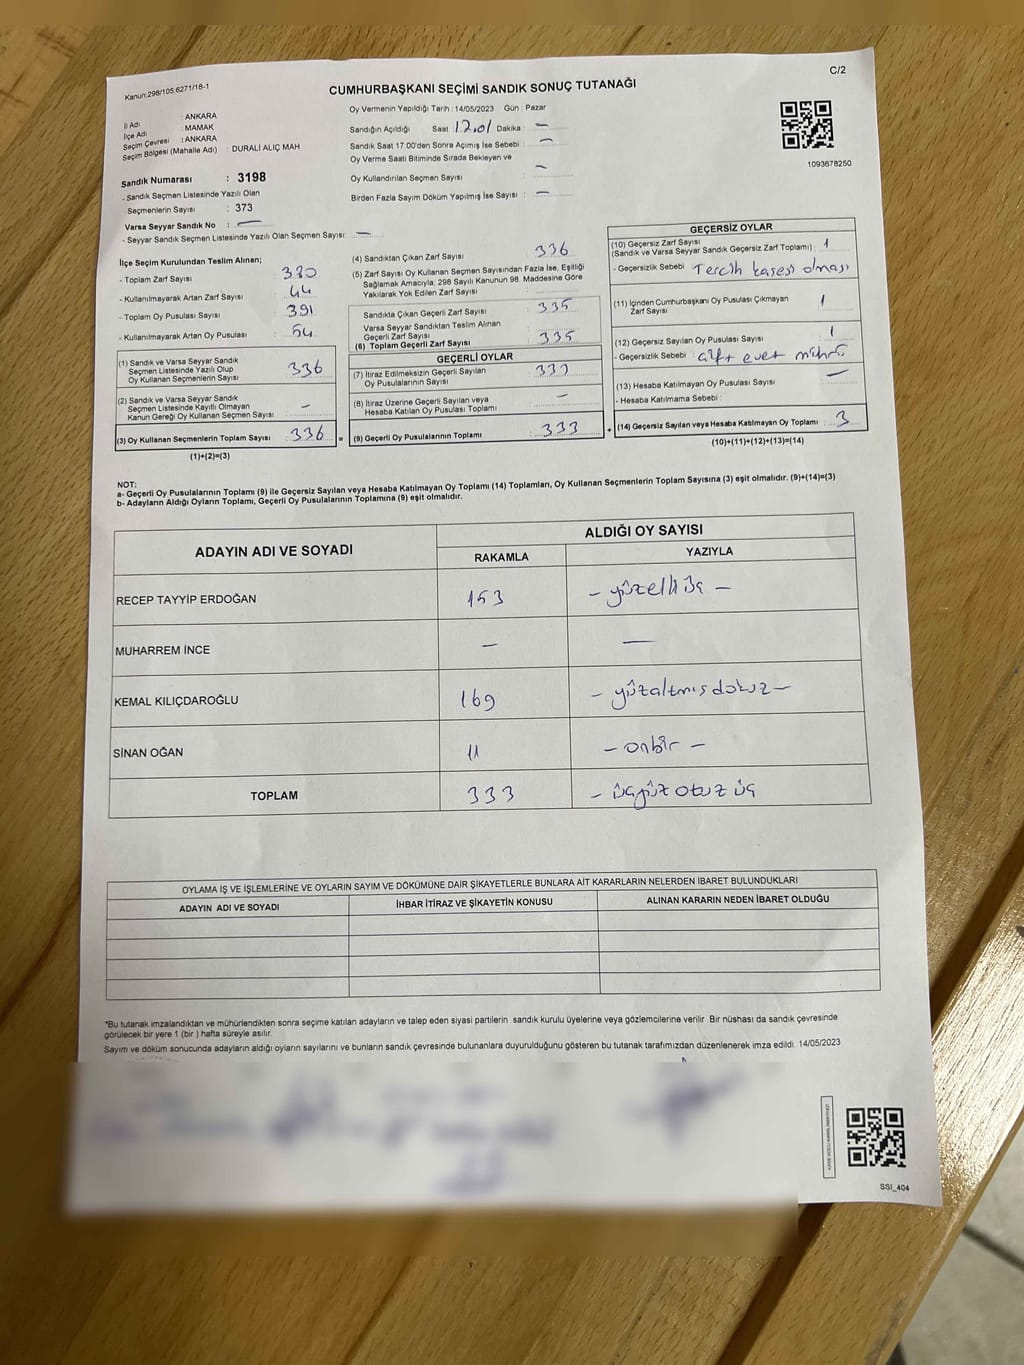 Kanun:298/105;6271/18-1
C/2
CUMHURBAŞKANI SEÇİMİ SANDIK SONUÇ TUTANAĞI
İl Adı : ANKARA
İlçe Adı : MAMAK
Seçim Çevresi : ANKARA
Seçim Bölgesi (Mahalle Adı) : DURALİ ALIÇ MAH
Sandık Numarası : 3198
- Sandık Seçmen Listesinde Yazılı Olan
Seçmenlerin Sayısı : 373
Varsa Seyyar Sandık No : —
- Seyyar Sandık Seçmen Listesinde Yazılı Olan Seçmen Sayısı: —
Oy Vermenin Yapıldığı Tarih : 14/05/2023 Gün : Pazar
Sandığın Açıldığı Saat 17.01 Dakika : —
Sandık Saat 17:00'den Sonra Açımış İse Sebebi —
Oy Verme Saati Bitiminde Sırada Bekleyen ve
Oy Kullandırılan Seçmen Sayısı —
Birden Fazla Sayım Döküm Yapılmış İse Sayısı : —
1093678250
İlçe Seçim Kurulundan Teslim Alınan;
- Toplam Zarf Sayısı 380
- Kullanılmayarak Artan Zarf Sayısı 44
- Toplam Oy Pusulası Sayısı 391
- Kullanılmayarak Artan Oy Pusulası 54
(1) Sandık ve Varsa Seyyar Sandık
Seçmen Listesinde Yazılı Olup
Oy Kullanan Seçmenlerin Sayısı 336
(2) Sandık ve Varsa Seyyar Sandık
Seçmen Listesinde Kayıtlı Olmayan
Kanun Gereği Oy Kullanan Seçmen Sayısı : —
(3) Oy Kullanan Seçmenlerin Toplam Sayısı : 336 =
(1)+(2)=(3)
(4) Sandıktan Çıkan Zarf Sayısı 336
(5) Zarf Sayısı Oy Kullanan Seçmen Sayısından Fazla İse, Eşitliği
Sağlamak Amacıyla, 298 Sayılı Kanunun 98. Maddesine Göre
Yakılarak Yok Edilen Zarf Sayısı
Sandıkta Çıkan Geçerli Zarf Sayısı : 335
Varsa Seyyar Sandıktan Teslim Alınan
Geçerli Zarf Sayısı
(6) Toplam Geçerli Zarf Sayısı : 335
GEÇERLİ OYLAR
(7) İtiraz Edilmeksizin Geçerli Sayılan
Oy Pusulalarının Sayısı : 333
(8) İtiraz Üzerine Geçerli Sayılan veya
Hesaba Katılan Oy Pusulası Toplamı : —
(9) Geçerli Oy Pusulalarının Toplamı : 333 +
GEÇERSİZ OYLAR
(10) Geçersiz Zarf Sayısı
(Sandık ve Varsa Seyyar Sandık Geçersiz Zarf Toplamı) 1
- Geçersizlik Sebebi Tercih kaşesi olması
(11) İçinden Cumhurbaşkanı Oy Pusulası Çıkmayan
Zarf Sayısı 1
(12) Geçersiz Sayılan Oy Pusulası Sayısı 1
- Geçersizlik Sebebi çift evet mührü
(13) Hesaba Katılmayan Oy Pusulası Sayısı —
- Hesaba Katılmama Sebebi :
(14) Geçersiz Sayılan veya Hesaba Katılmayan Oy Toplamı : 3
(10)+(11)+(12)+(13)=(14)
NOT:
a- Geçerli Oy Pusulalarının Toplamı (9) ile Geçersiz Sayılan veya Hesaba Katılmayan Oy Toplamı (14) Toplamları, Oy Kullanan Seçmenlerin Toplam Sayısına (3) eşit olmalıdır. (9)+(14)=(3)
b- Adayların Aldığı Oyların Toplamı, Geçerli Oy Pusulalarının Toplamına (9) eşit olmalıdır.
ADAYIN ADI VE SOYADI ALDIĞI OY SAYISI
RAKAMLA YAZIYLA
RECEP TAYYİP ERDOĞAN 153 - yüzelliüç -
MUHARREM İNCE — —
KEMAL KILIÇDAROĞLU 169 - yüzaltmışdokuz -
SİNAN OĞAN 11 - onbir -
TOPLAM 333 - üçyüz otuz üç
OYLAMA İŞ VE İŞLEMLERİNE VE OYLARIN SAYIM VE DÖKÜMÜNE DAİR ŞİKAYETLERLE BUNLARA AİT KARARLARIN NELERDEN İBARET BULUNDUKLARI
ADAYIN ADI VE SOYADI İHBAR İTİRAZ VE ŞİKAYETİN KONUSU ALINAN KARARIN NEDEN İBARET OLDUĞU
*Bu tutanak imzalandıktan ve mühürlendikten sonra seçime katılan adayların ve talep eden siyasi partilerin sandık kurulu üyelerine veya gözlemcilerine verilir. Bir nüshası da sandık çevresinde
görülecek bir yere 1 (bir ) hafta süreyle asılır.
Sayım ve döküm sonucunda adayların aldığı oyların sayılarını ve bunların sandık çevresinde bulunanlara duyurulduğunu gösteren bu tutanak tarafımızdan düzenlenerek imza edildi. 14/05/2023
SSİ_404